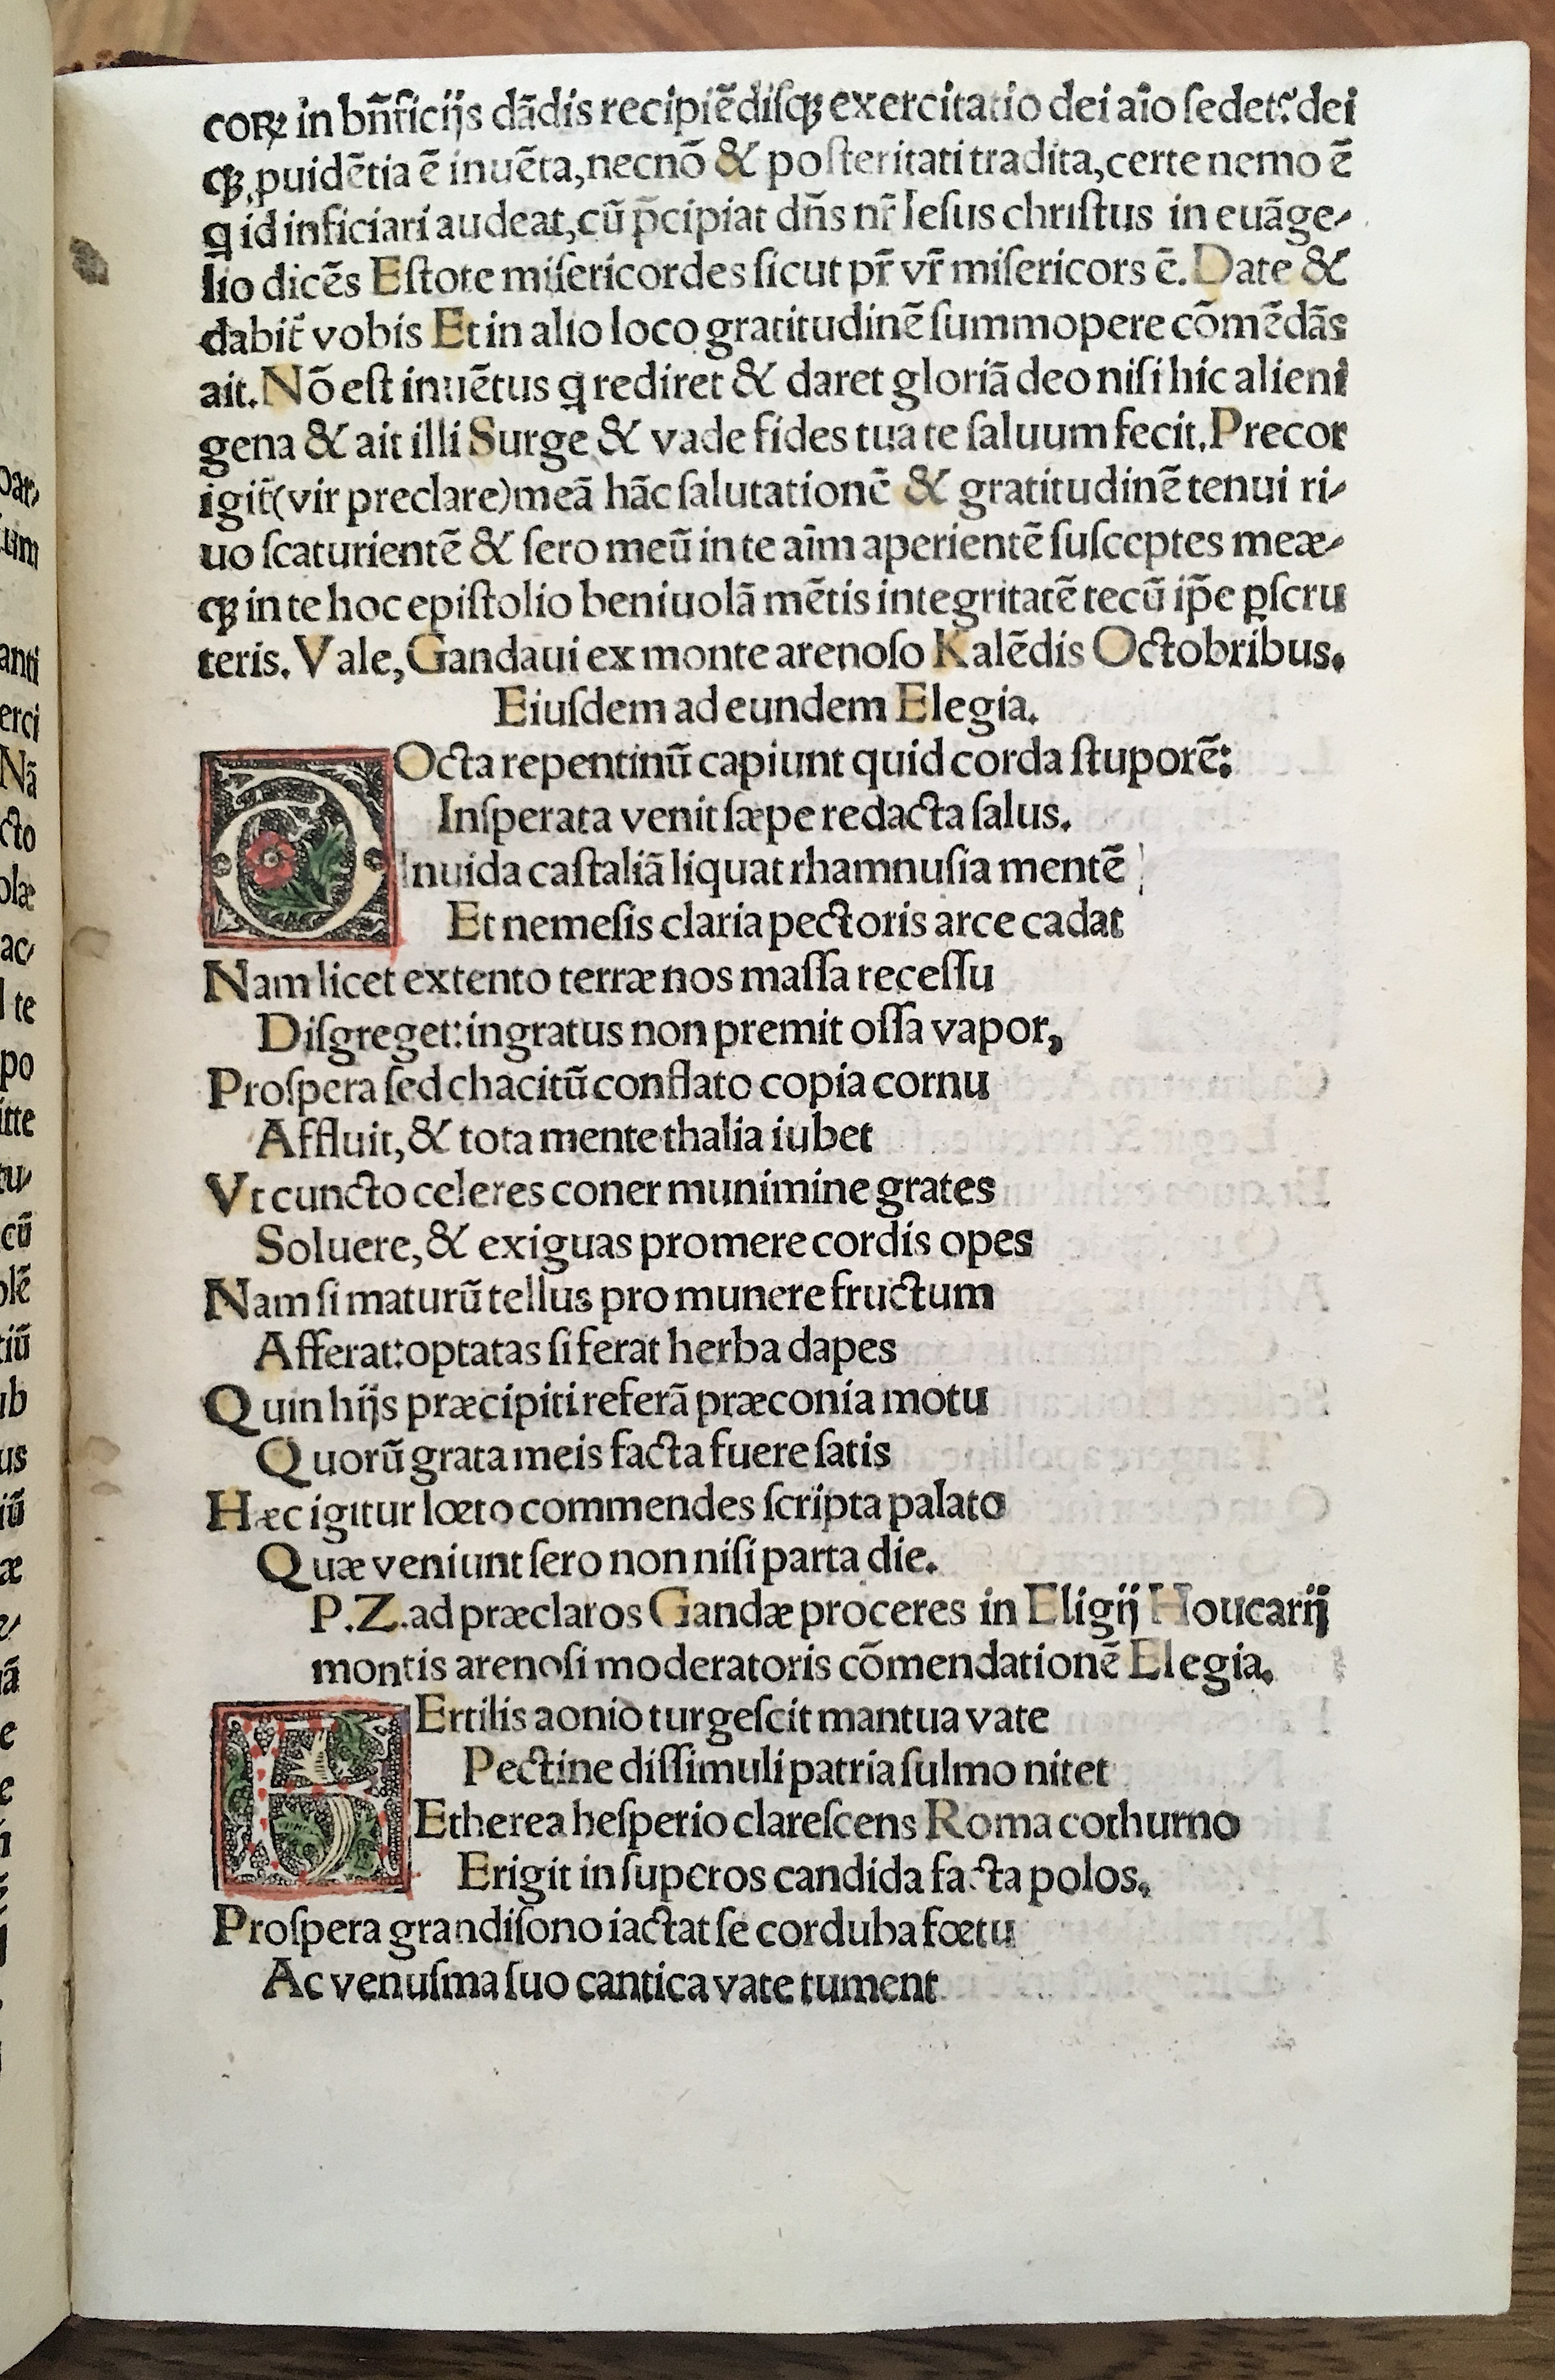 coꝝ in bñficijs dãdis recipiẽdiſqꝫ exercitatio dei aĩo ſedet: dei
qꝫ ꝓuidẽtia ẽ inuẽta, necnõ & poſteritati tradita, certe nemo ẽ
q id inficiari audeat, cũ p̃cipiat dñs nr̃ Ieſus chriſtus in euãge-
lio dicẽs Eſtote miſericordes ſicut pr̃ vr̃ miſericors ẽ. Date &
dabit̃ vobis Et in alio loco gratitudinẽ ſummopere cõmẽdãs
ait. Nõ eſt inuẽtus q rediret & daret gloriã deo niſi hic alieni
gena & ait illi Surge & vade fides tua te ſaluum fecit. Precor
igit̃ (vir preclare) meã hãc ſalutationẽ & gratitudinẽ tenui ri-
uo ſcaturientẽ & ſero meũ in te aĩm aperientẽ ſuſceptes meæ-
qꝫ in te hoc epiſtolio beniuolã mẽtis integritatẽ tecũ ip̃e ꝑſcru
teris. Vale, Gandaui ex monte arenoſo Kalẽdis Octobribus.
Eiuſdem ad eundem Elegia.
DOcta repentinũ capiunt quid corda ſtuporẽ:
Inſperata venit ſæpe redacta ſalus.
Inuida caſtaliã liquat rhamnuſia mentẽ
Et nemeſis claria pectoris arce cadat
Nam licet extento terræ nos maſſa receſſu
Diſgreget: ingratus non premit oſſa vapor,
Proſpera ſed chacitũ conflato copia cornu
Affluit, & tota mente thalia iubet
Vt cuncto celeres coner munimine grates
Soluere, & exiguas promere cordis opes
Nam ſi maturũ tellus pro munere fructum
Afferat: optatas ſi ferat herba dapes
Quin hijs præcipiti referã præconia motu
Quorũ grata meis facta fuere ſatis
Hæc igitur lœto commendes ſcripta palato
Quæ veniunt ſero non niſi parta die.
P.Z. ad præclaros Gandæ proceres in Eligij Houcarij
montis arenoſi moderatoris cõmendationẽ Elegia.
FErtilis aonio turgeſcit mantua vate
Pectine diſſimuli patria ſulmo nitet
Etherea heſperio clareſcens Roma cothurno
Erigit in ſuperos candida facta polos.
Proſpera grandiſono iactat ſe corduba fœtu
Ac venuſma ſuo cantica vate tument